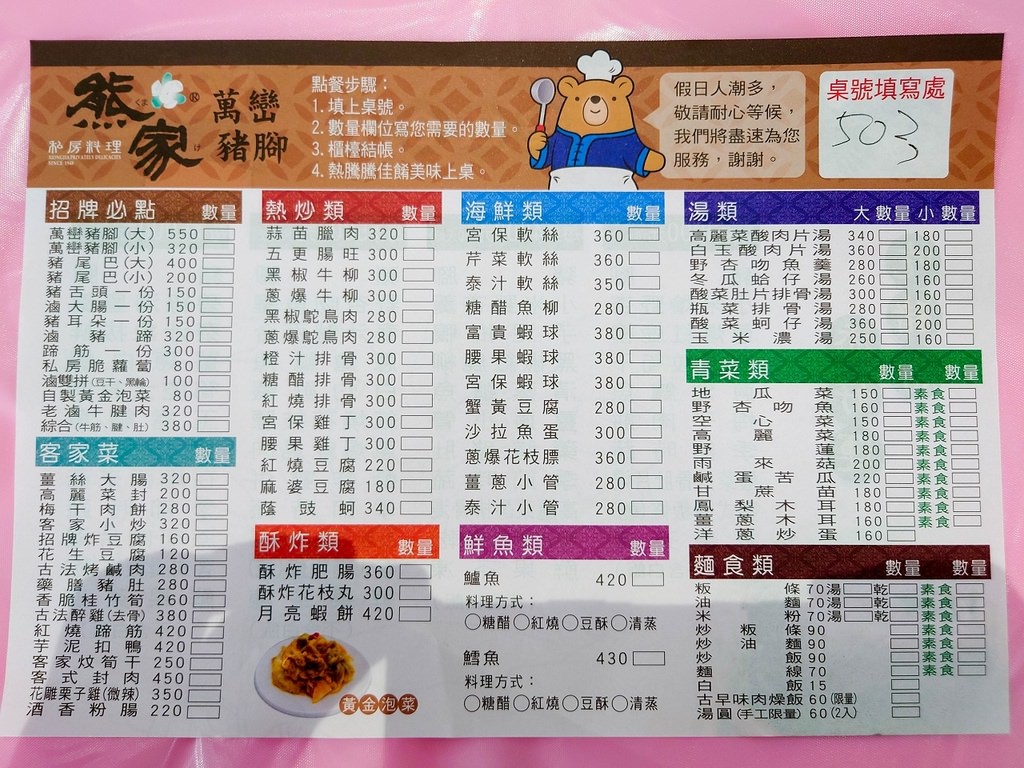 熊家
くま け ®
私房料理
萬巒
豬腳
點餐步驟：
1. 填上桌號。
2. 數量欄位寫您需要的數量。
3. 櫃檯結帳。
4. 熱騰騰佳餚美味上桌。
假日人潮多，
敬請耐心等候，
我們將盡速為您
服務，謝謝。
桌號填寫處
503
招牌必點 數量
萬巒豬腳(大) 550
萬巒豬腳(小) 320
豬尾巴(大) 400
豬尾巴(小) 200
豬舌頭一份 150
滷大腸一份 150
豬耳朵一份 150
滷豬蹄 320
蹄筋一份 300
私房脆蘿蔔 80
滷雙拼(豆干、黑輪) 100
自製黃金泡菜 80
老滷牛腱肉 320
綜合(牛筋、腱、肚) 380
客家菜 數量
薑絲大腸 320
高麗菜封 200
梅干肉餅 280
客家小炒 320
招牌炸豆腐 160
花生豆腐 120
古法烤鹹肉 280
藥膳豬肚 280
香脆桂竹筍 260
古法醉雞(去骨) 380
紅燒蹄筋 420
芋泥扣鴨 420
客家炆筍干 250
客式封肉 450
花雕栗子雞(微辣) 350
酒香粉腸 220
熱炒類 數量
蒜苗臘肉 320
五更腸旺 300
黑椒牛柳 300
蔥爆牛柳 300
黑椒鴕鳥肉 280
蔥爆鴕鳥肉 280
橙汁排骨 300
糖醋排骨 300
紅燒排骨 300
宮保雞丁 300
腰果雞丁 300
紅燒豆腐 220
麻婆豆腐 180
蔭豉蚵 340
酥炸類 數量
酥炸肥腸 360
酥炸花枝丸 300
月亮蝦餅 420
黃金泡菜
海鮮類 數量
宮保軟絲 360
芹菜軟絲 360
泰汁軟絲 350
糖醋魚柳 280
富貴蝦球 380
腰果蝦球 380
宮保蝦球 380
蟹黃豆腐 280
沙拉魚蛋 300
蔥爆花枝膘 360
薑蔥小管 280
泰汁小管 280
鮮魚類 數量
鱸魚 420
料理方式：
○糖醋○紅燒○豆酥○清蒸
鱈魚 430
料理方式：
○糖醋○紅燒○豆酥○清蒸
湯類 大 數量 小 數量
高麗菜酸肉片湯 340 180
白玉酸肉片湯 360 200
野杏吻魚羹 280 180
冬瓜蛤仔湯 260 160
酸菜肚片排骨湯 300 160
瓶菜排骨湯 280 200
酸菜蚵仔湯 360 200
玉米濃湯 250 160
青菜類 數量 數量
地瓜菜 150 素食
野杏吻魚 160 素食
空心菜 150 素食
高麗菜 180 素食
野蓮 180 素食
雨來菇 200 素食
鹹蛋苦瓜 220 素食
甘蔗苗 180 素食
鳳梨木耳 180 素食
薑蔥木耳 160 素食
洋蔥炒蛋 160
麵食類 數量 數量
粄條 70湯 乾 素食
油麵 70湯 乾 素食
米粉 70湯 乾 素食
炒粄條 90 素食
炒油麵 90 素食
炒飯 90 素食
麵線 70 素食
白飯 15
古早味肉燥飯 60(限量)
湯圓(手工限量) 60(2入)